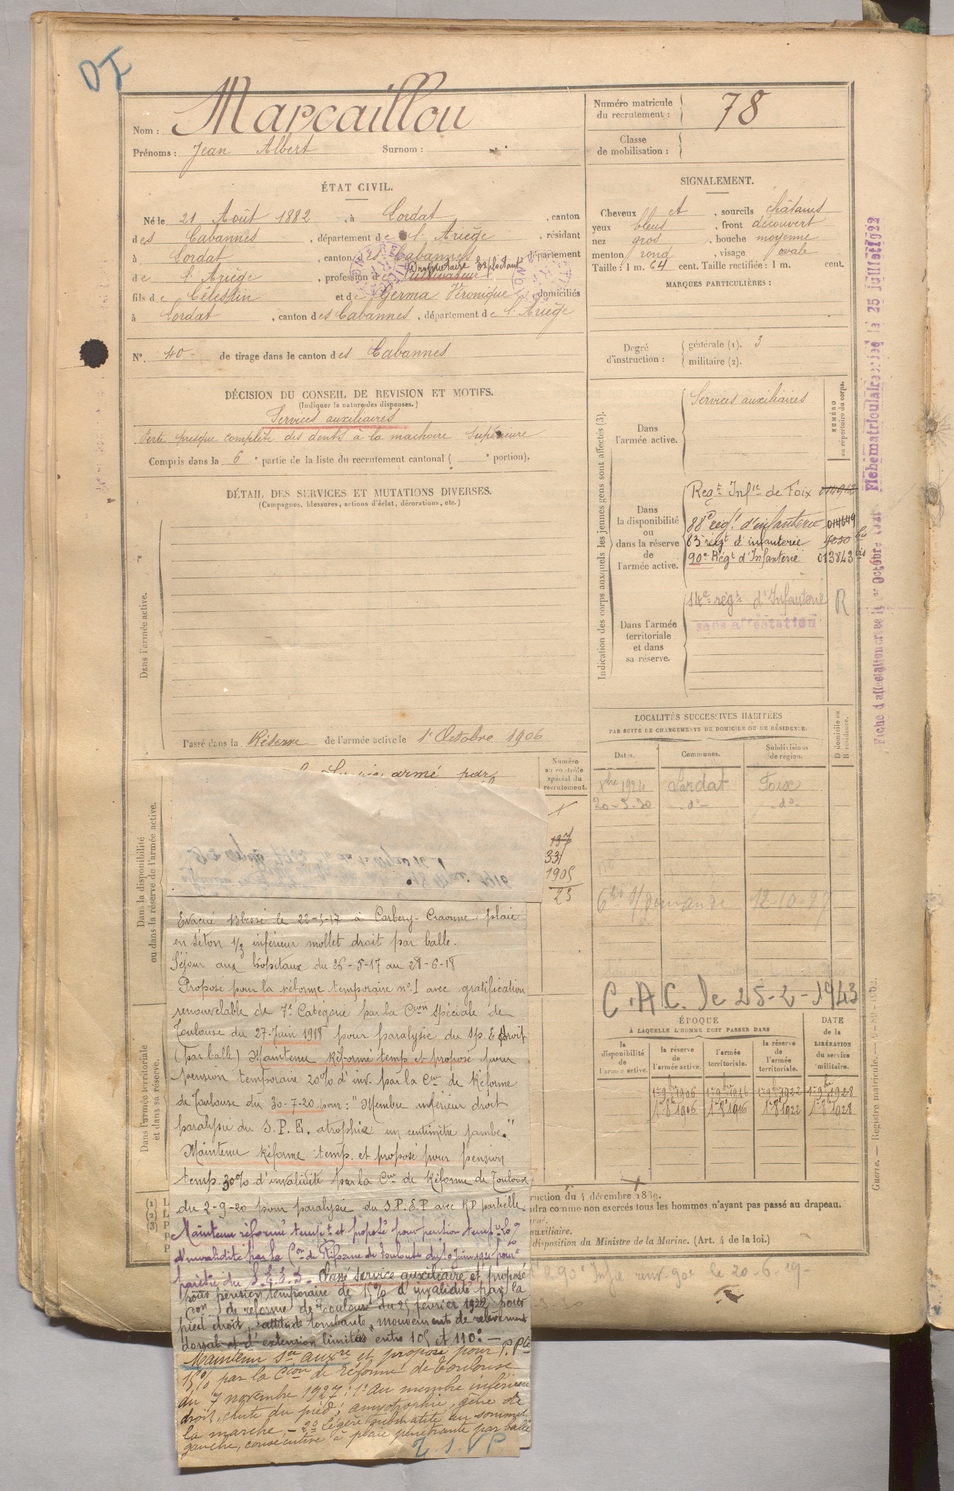 DI
Nom : Marcaillou
Prénoms : Jean Albert Surnom :
Numéro matricule du recrutement : 78
Classe de mobilisation :
ÉTAT CIVIL.
Né le 21 Août 1882, à Lordat, canton
des Cabannes, département de l'Ariège, résidant
à Lordat, canton des Cabannes, département
de l'Ariège, profession de Cultivateur
Propriétaire Exploitant
fils de Célestin et de Germa Véronique, domiciliés
à Lordat, canton des Cabannes, département de l'Ariège
N° 40 de tirage dans le canton des Cabannes
SIGNALEMENT.
Cheveux et, sourcils châtains
yeux bleus, front découvert
nez gros, bouche moyenne
menton rond, visage ovale
Taille : 1 m. 64 cent. Taille rectifiée : 1 m. cent.
MARQUES PARTICULIÈRES :
Degré d'instruction : générale (1). 3
militaire (2).
DÉCISION DU CONSEIL DE REVISION ET MOTIFS.
(Indiquer la nature des dispenses.)
Services auxiliaires
Perte presque complète des dents à la machoire supérieure
Compris dans la 6e partie de la liste du recrutement cantonal ( e portion).
DÉTAIL DES SERVICES ET MUTATIONS DIVERSES.
(Campagnes, blessures, actions d'éclat, décorations, etc.)
Dans l'armée active.
Passé dans la Réserve de l'armée active le 1er Octobre 1906
Indication des corps auxquels les jeunes gens sont affectés (3).
NUMÉRO au répertoire du corps.
Dans l'armée active.
Services auxiliaires
Dans la disponibilité ou dans la réserve de l'armée active.
Regt Infie de Foix
88e regt d'infanterie 014649
83e regt d'infanterie
90e Regt d'Infanterie 013843
Dans l'armée territoriale et dans sa réserve.
regt d'Infanterie R
sans affectation
Fiche matriculaire 25 juillet 1922
LOCALITÉS SUCCESSIVES HABITÉES
PAR SUITE DE CHANGEMENTS DE DOMICILE OU DE RÉSIDENCE.
Dates. Communes. Subdivisions de région. D domicile ou R résidence.
1924 Lordat Foix
20-5-30 do do
Numéro au contrôle spécial du recrutement.
33
1905
23
Dans la disponibilité ou dans la réserve de l'armée active.
Dans l'armée territoriale et dans sa réserve.
armé par
Evacué blessé le 22-5-17 à Corbeny-Craonne : plaie
en séton 1/3 inférieur mollet droit par balle.
Séjour aux hôpitaux du 26-5-17 au 28-6-18
Proposé pour la réforme temporaire n° 1 avec gratification
renouvelable de 7e Catégorie par la Con Spéciale de
Toulouse du 27 Juin 1918 pour paralysie du Sp. E droit
(par balle) Maintenu Réformé temp. et proposé pour
pension temporaire 20% d'inv. par la Con de Réforme
de Toulouse du 30-7-20 pour : "Membre inférieur droit
paralysie du S.P.E. atrophie un centimètre jambe."
Maintenu Réformé temp. et proposé pour pension
temp. 30% d'invalidité par la Con de Réforme de Toulouse
du 2-9-20 pour paralysie du S.P.E.P avec RD partielle
Maintenu réformé tempre et proposé pour pension temp. 20%
d'invalidité par la Con de Réforme de Toulouse du
Classé service auxiliaire et proposé
pour pension temporaire de 15% d'invalidité par la
Con de réforme de Toulouse du 25 février 1922 pour
pied droit, attitude tombante, mouvements de relèvement
dorsal et d'extension limités entre 105 et 110° —
Maintenu Sce auxre et proposé pour P. Pte
15% par la Cion de réforme de Toulouse
du 7 novembre 1927 : 1° Au membre inférieur
droit, chute du pied, amyotrophie, gêne de
la marche, — 2° légère submatité au sommet
gauche, consécutive à plaie pénétrante par balle
T.S.V.P
C.A.C. le 25-2-1943
ÉPOQUE
À LAQUELLE L'HOMME DOIT PASSER DANS
DATE de la LIBÉRATION du service militaire.
la disponibilité de l'armée active. la réserve de l'armée active. l'armée territoriale. la réserve de l'armée territoriale.
1er 8bre 1906 1er 8bre 1916 1er 8bre 1922 1er 8bre 1928
ruction du 4 décembre 1889.
dra comme non exercés tous les hommes n'ayant pas passé au drapeau.
auxiliaire.
disposition du Ministre de la Marine. (Art. 4 de la loi.)
Guerre. — Registre matricule.